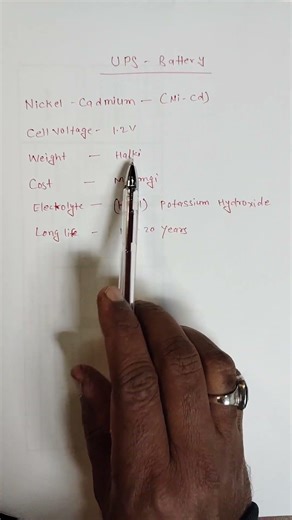 UPS - Battery
Nickel - Cadmium - (Ni-Cd)
Cell Voltage - 1.2V
Weight - Halki
Cost -
Electrolyte - Potassium Hydroxide
Long life - 20 Years